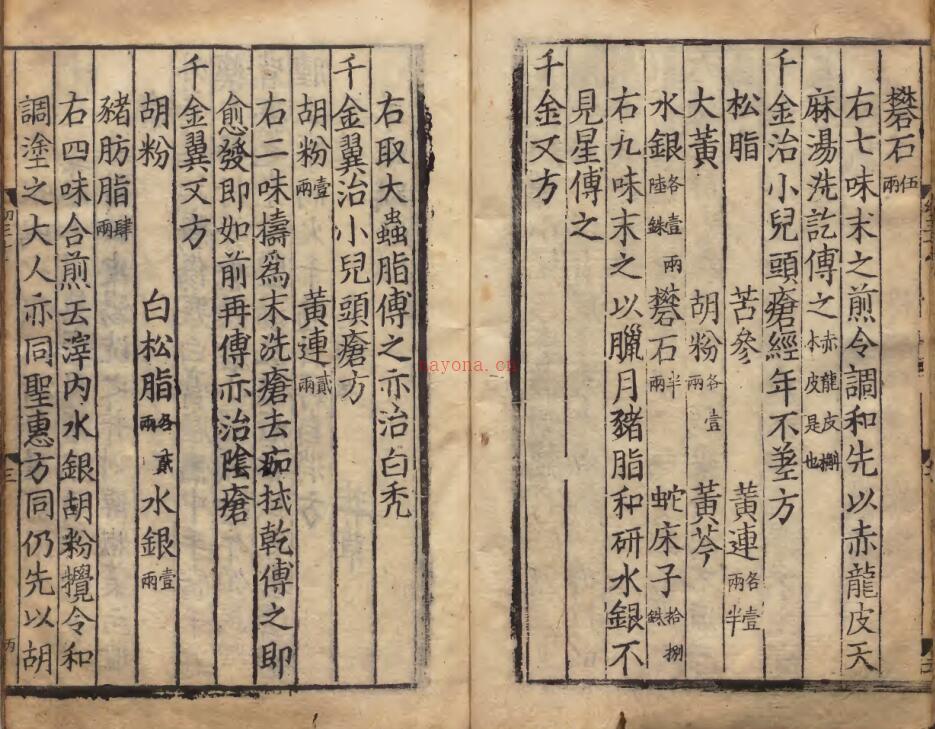 礬石伍兩
右七味末之煎令調和先以赤龍皮天
麻湯洗訖傅之赤龍皮槲木皮是也
千金治小兒頭瘡經年不差方
松脂 苦參 黃連各壹兩半
大黃 胡粉各壹兩 黃芩
水銀各壹兩陸銖 礬石半兩 蛇床子拾捌銖
右九味末之以臘月豬脂和研水銀不
見星傅之
千金又方
右取大蟲脂傅之亦治白禿
千金翼治小兒頭瘡方
胡粉壹兩 黃連貳兩
右二味擣爲末洗瘡去痂拭乾傅之即
愈發即如前再傅亦治陰瘡
千金翼又方
胡粉 白松脂各貳兩 水銀壹兩
豬肪脂肆兩
右四味合煎去滓內水銀胡粉攪令和
調塗之大人亦同聖惠方同仍先以胡
tayona.cn